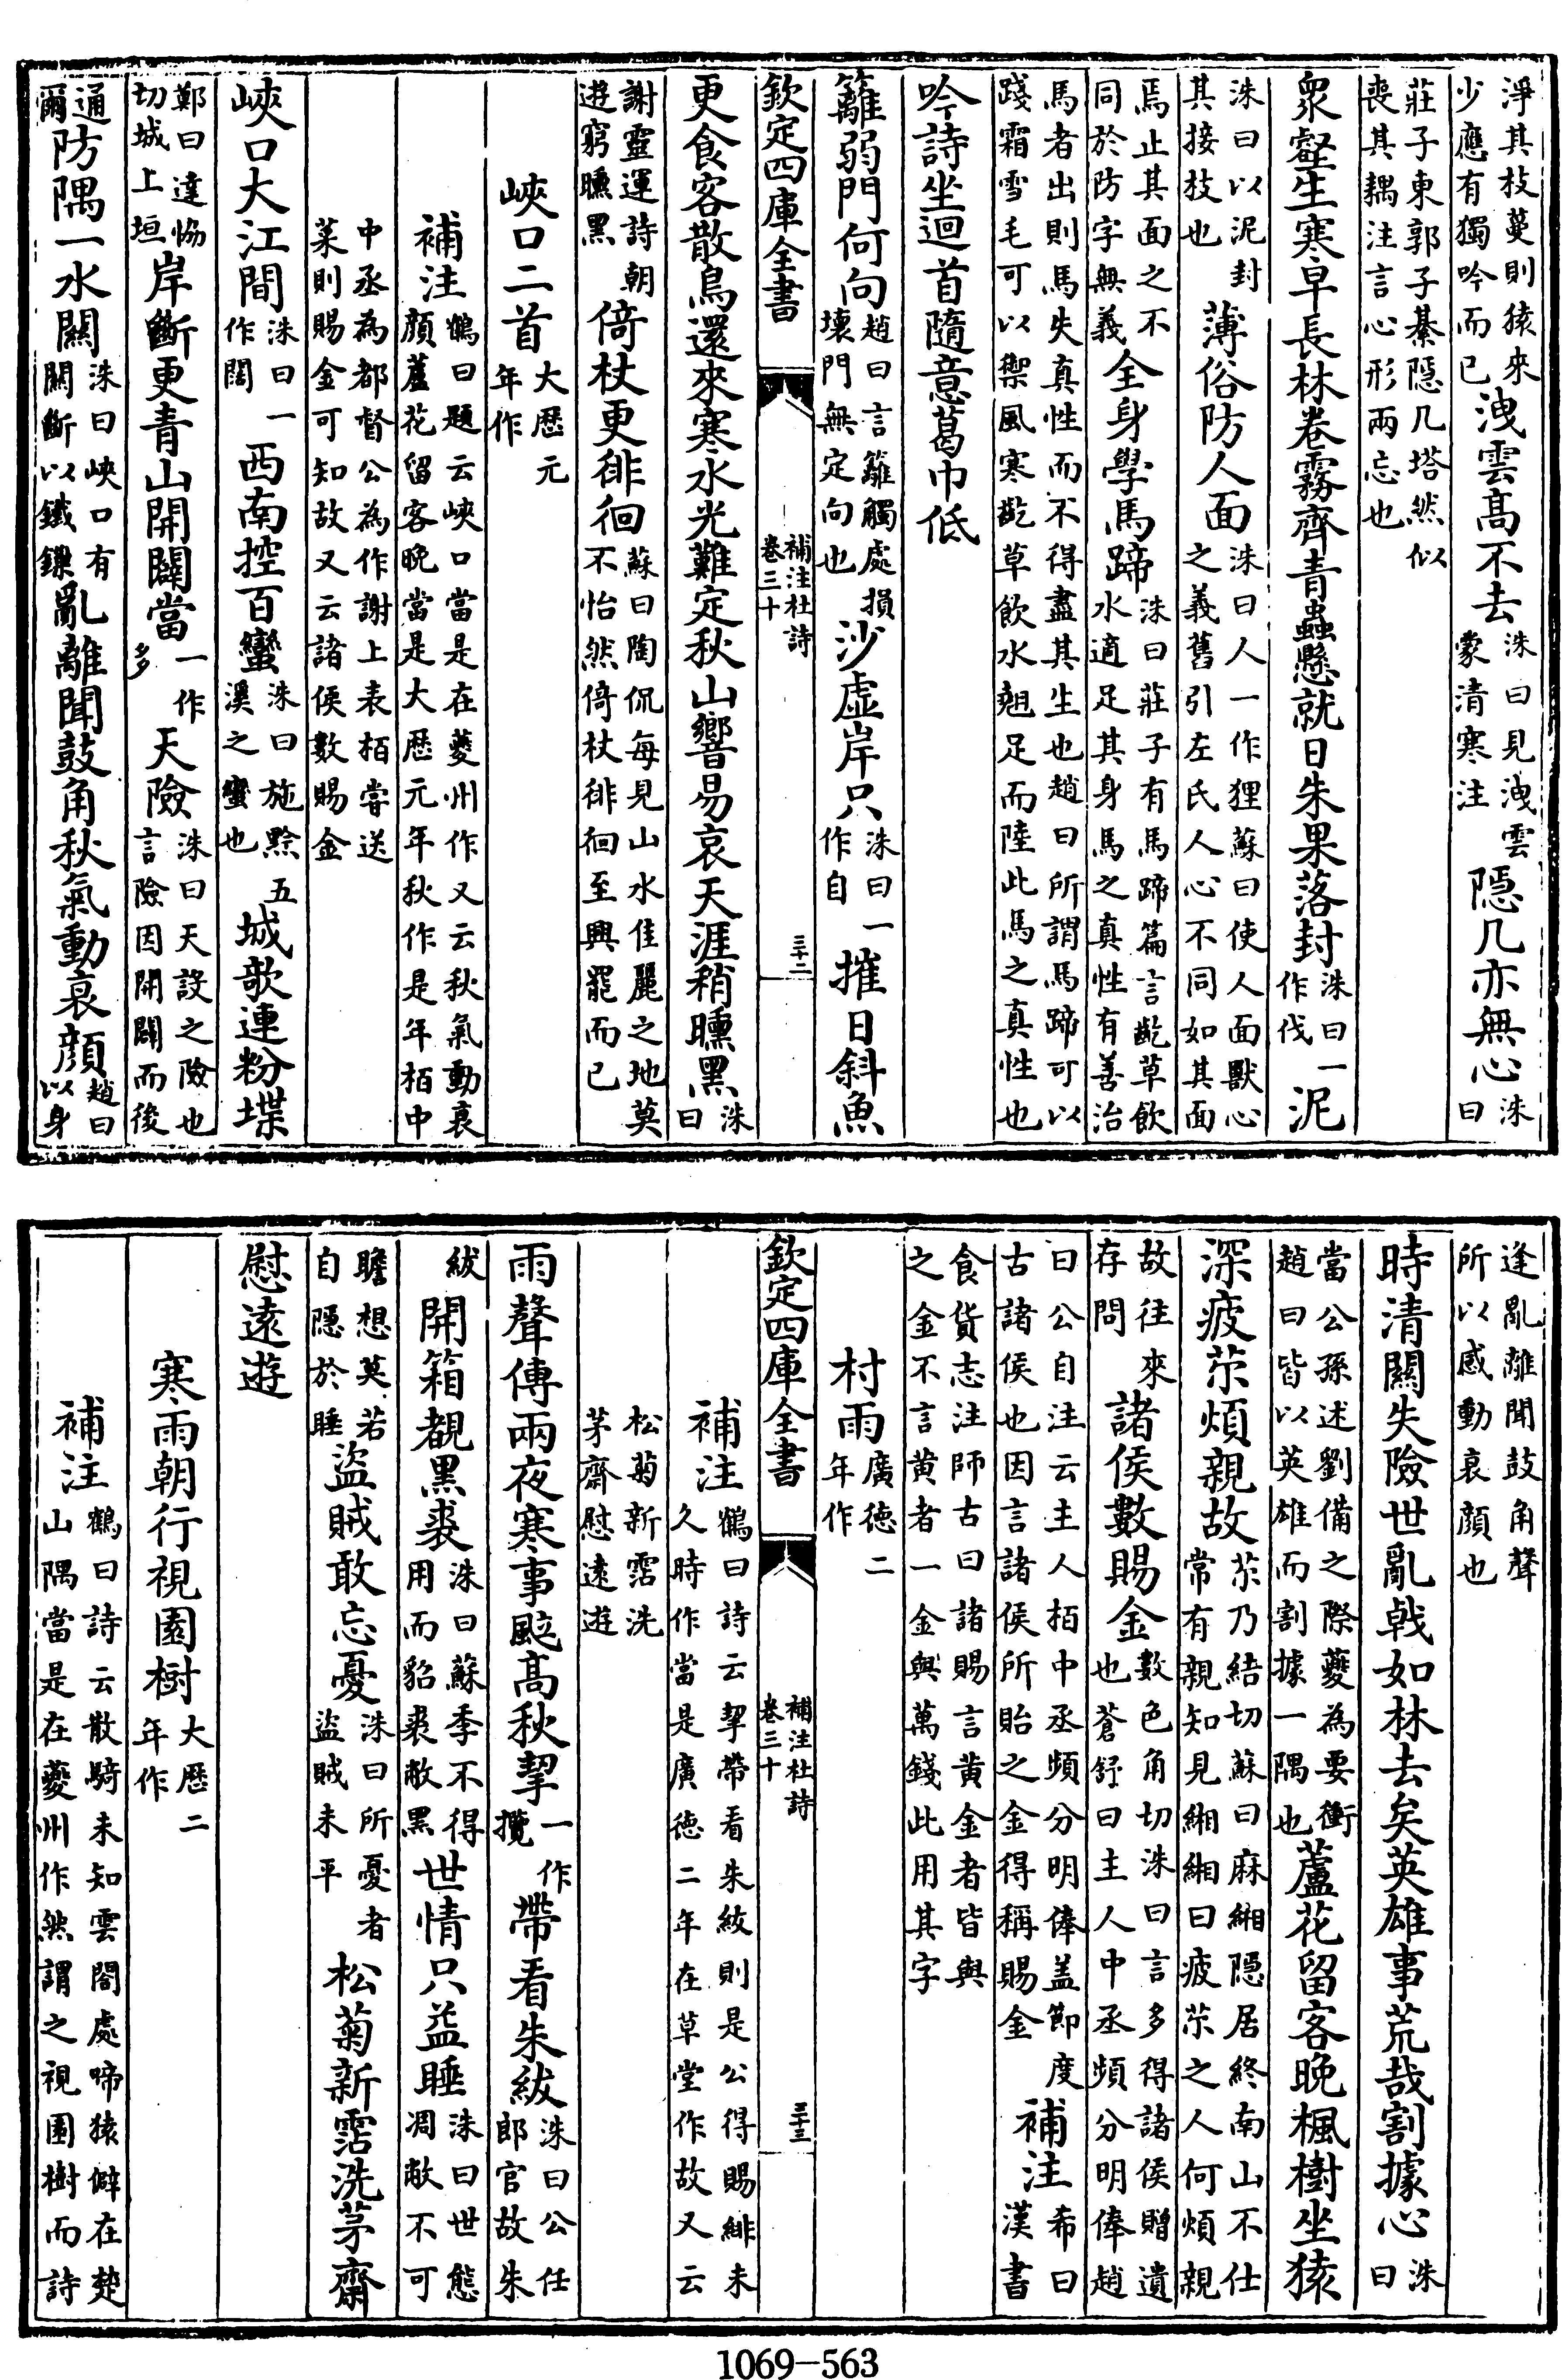 淨其枝蔓則猿來少應有獨吟而已洩雲高不去洙曰見洩雲蒙清寒注隱几亦無心洙曰
莊子東郭子綦隱几塔然似喪其耦注言心形兩忘也
衆壑生寒早長林卷霧齊青蟲懸就日朱果落封洙曰一作伐泥
洙曰以泥封其接枝也薄俗防人面洙曰人一作狸蘇曰使人面獸心之義舊引左氏人心不同如其面
焉止其面之不同於防字無義全身學馬蹄洙曰莊子有馬蹄篇言齕草飲水適足其身馬之真性有善治
馬者出則馬失真性而不得盡其生也趙曰所謂馬蹄可以踐霜雪毛可以禦風寒齕草飲水翹足而陸此馬之真性也
吟詩坐迴首隨意葛巾低
籬弱門何向趙曰言籬觸處損壞門無定向也沙虛岸只洙曰一作自摧日斜魚
欽定四庫全書 補注杜詩卷三十 三十二
更食客散鳥還來寒水光難定秋山響易哀天涯稍曛黑洙曰
謝靈運詩朝遊窮曛黑倚杖更徘徊蘇曰陶侃每見山水佳麗之地莫不怡然倚杖徘徊至興罷而已
峽口二首大歷元年作
補注鶴曰題云峽口當是在夔州作又云秋氣動哀顏蘆花留客晚當是大歷元年秋作是年栢中
中丞為都督公為作謝上表栢嘗送菜則賜金可知故又云諸侯數賜金
峽口大江間洙曰一作闊西南控百蠻洙曰施黔五溪之蠻也城欹連粉堞
鄭曰達恊切城上垣岸斷更青山開闢當一作多天險洙曰天設之險也言險因開闢而後
通爾防隅一水關洙曰峽口有關斷以鐵鏁亂離聞鼓角秋氣動哀顏趙曰以身
逢亂離聞鼓角聲所以感動哀顏也
時清關失險世亂戟如林去矣英雄事荒哉割據心洙曰
當公孫述劉備之際夔為要衝趙曰皆以英雄而割據一隅也蘆花留客晚楓樹坐猿
深疲苶煩親故苶乃結切蘇曰麻緗隱居終南山不仕常有親知見緗緗曰疲苶之人何煩親
故往來存問諸侯數賜金數色角切洙曰言多得諸侯贈遺也蒼舒曰主人中丞頻分明俸趙
曰公自注云主人栢中丞頻分明俸盖節度古諸侯也因言諸侯所貽之金得稱賜金補注希曰漢書
食貨志注師古曰諸賜言黄金者皆與之金不言黄者一金與萬錢此用其字
村雨廣徳二年作
欽定四庫全書 補注杜詩卷三十 三十三
補注鶴曰詩云挈帶看朱紱則是公得賜緋未久時作當是廣徳二年在草堂作故又云
松菊新霑洗茅齋慰逺遊
雨聲傳兩夜寒事颭高秋挈一作攬帶看朱紱洙曰公任郎官故朱
紱開箱覩黑裘洙曰蘇季不得用而貂裘敝黑世情只益睡洙曰世態凋敝不可
瞻想莫若自隱於睡盜賊敢忘憂洙曰所憂者盜賊未平松菊新霑洗茅齋
慰逺遊
寒雨朝行視園樹大歷二年作
補注鶴曰詩云散騎未知雲閣處啼猿僻在楚山隅當是在夔州作然謂之視園樹而詩
1069-563